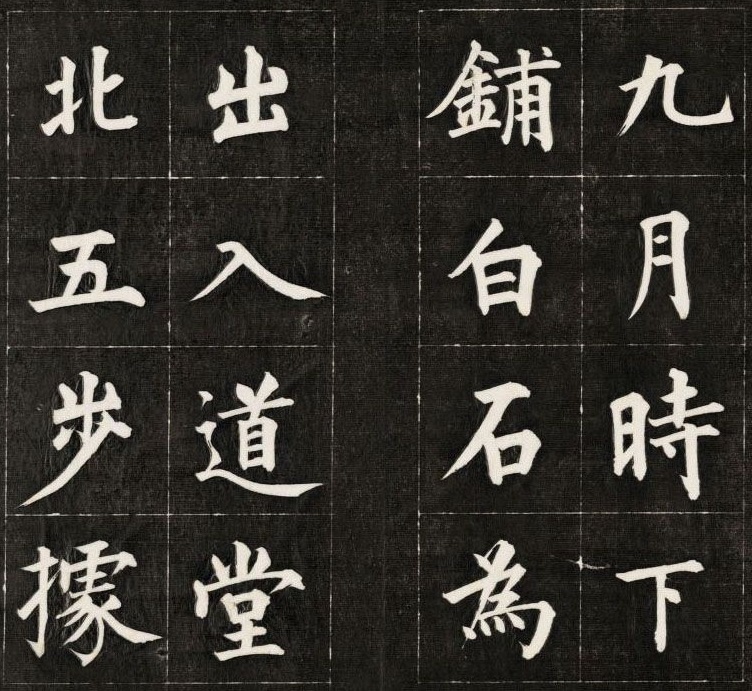 九月時下
鋪白石為
出入道堂
北五步據